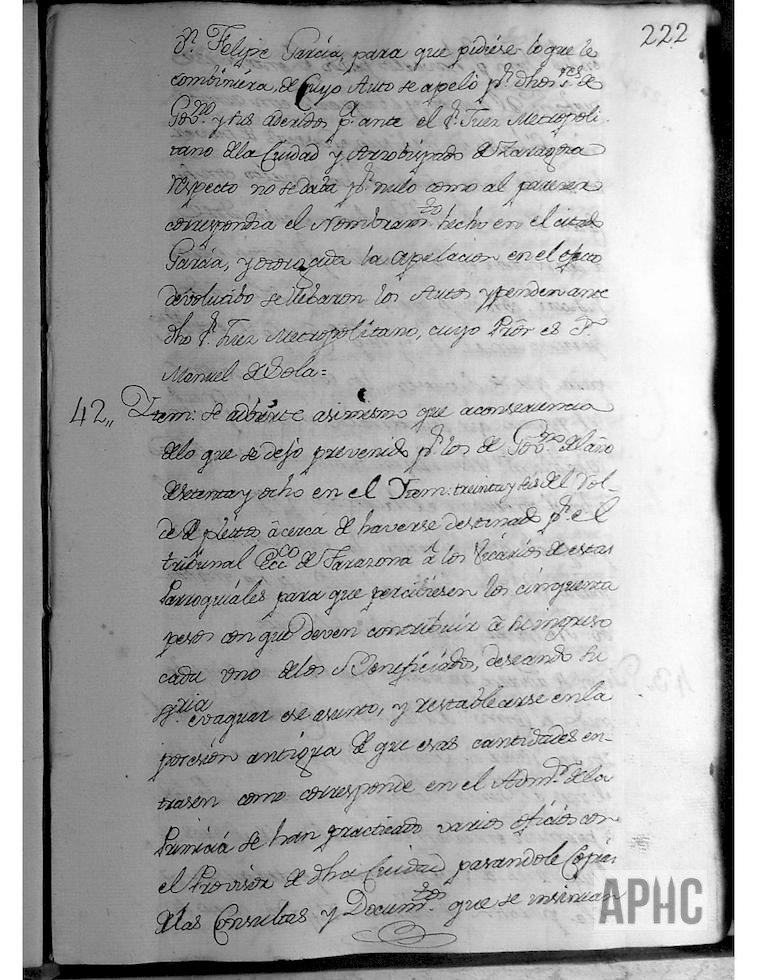 222
Dn. Felipe Garcia, para que pidiese lo que le
combiniera, de Cuyo Auto se apelò pr. dhos Sres. de
Govno. y sus aderidos pa. ante el Sr. Juez Metropoli-
tano de la Ciudad y Arzobispado de Zaragoza
respecto no se dava pr. nulo como al parecer
correspondia el Nombramto. hecho en el citado
Garcia, y otorgada la apelacion en el efecto
devolutibo se llebaron los Autos y penden ante
dho Sr. Juez Metropolitano, cuyo Prôr es Fr.
Manuel de Sola=
42,, Ytem: se adbierte asimismo que a consequencia
de lo que se dejo prevenido pr. los de Govno. del año
de setenta y ocho en el Ytem: treinta y seis del Vol-
de de pleitos àcerca de haverse destinado pr. el
tribunal Ecco. de Tarazona à los Vicarios de estas
Parroquiales para que percibiesen los cinquenta
pesos con que deven contribuir à su ingreso
cada uno de los Beneficiados, deseando su
Sria. evaquar ese asunto, y restablecerse en la
posesion antigua de que esas cantidades en-
trasen como corresponde en el Admr. de la
Primicia se han practicado varios oficios con
el Provisor de dha Ciudad pasandole Copia
de las Consultas y Documtos. que se insinuan
APHC